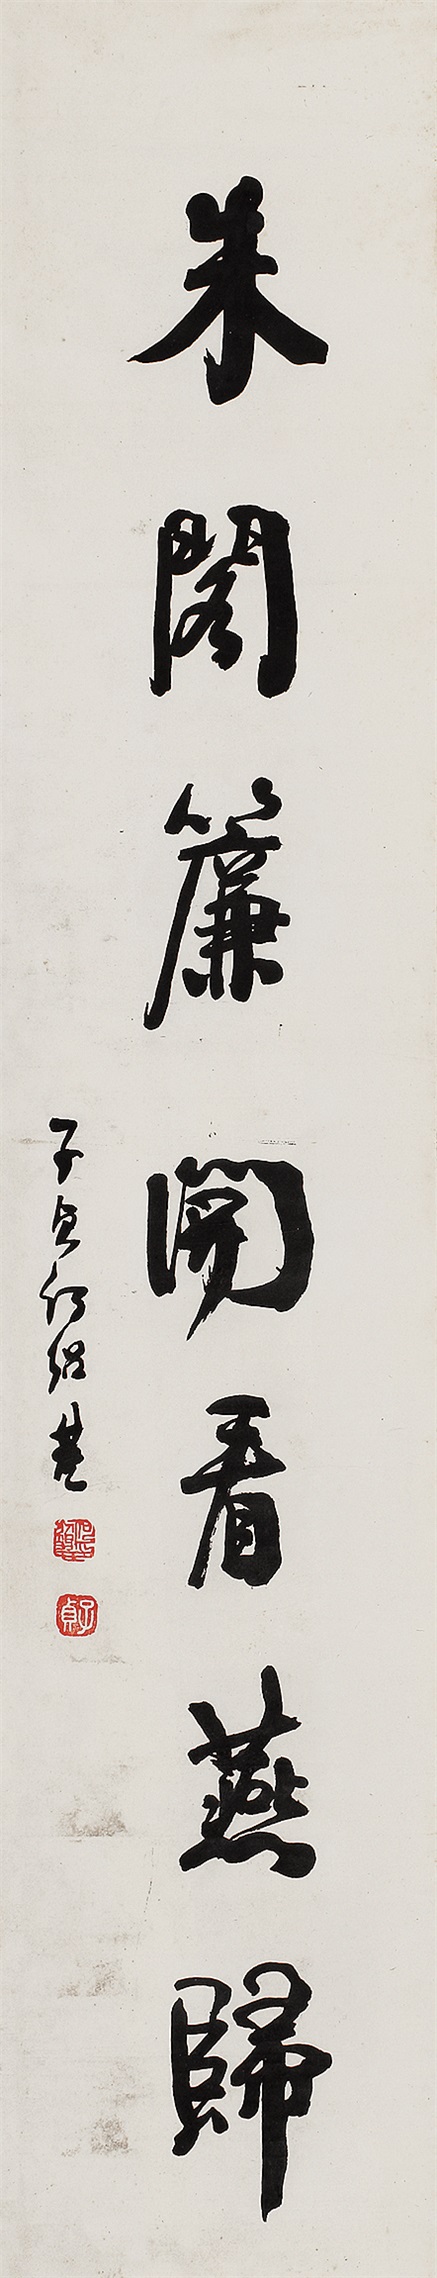 朱閣簾開看燕歸
子貞何紹基
子貞